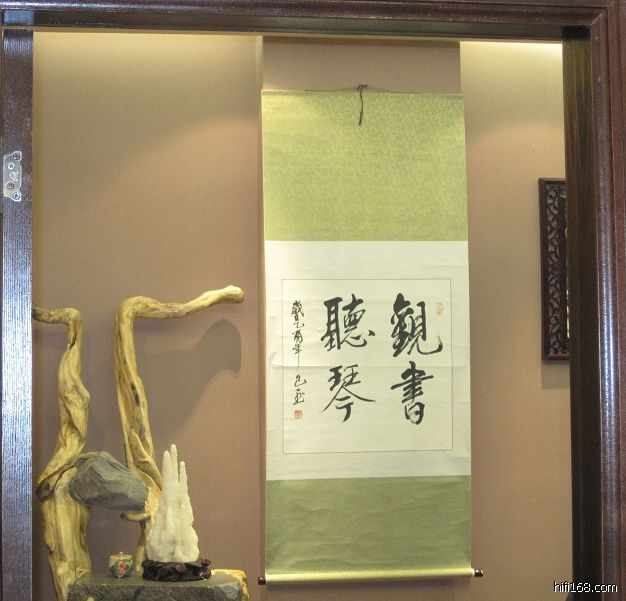 觀書
聽琴
歲乙酉年
hifi168.com